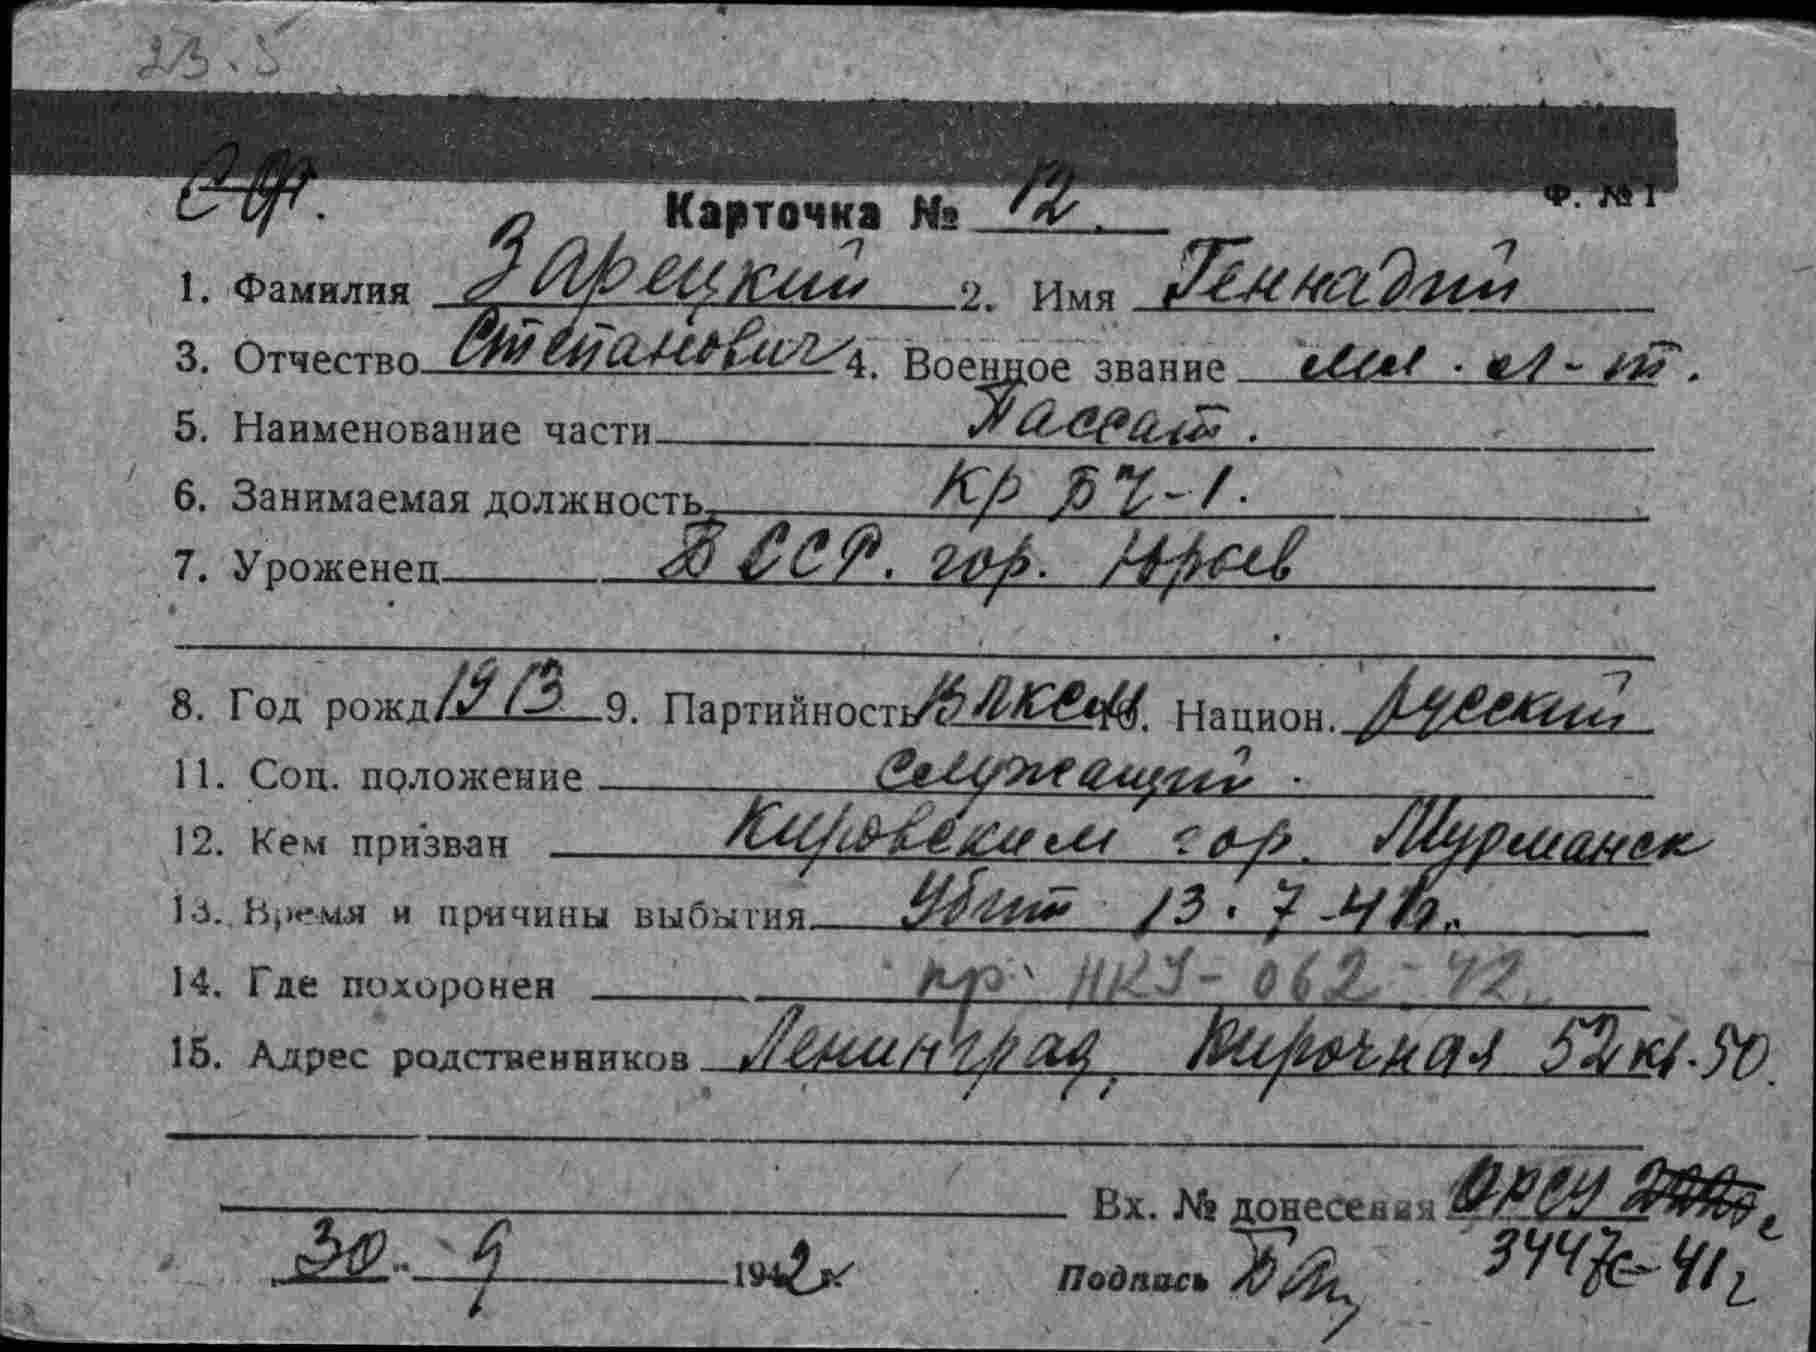 23.5
СФ.
Ф. № 1
Карточка № 12.
1. Фамилия Зарецкий 2. Имя Геннадий
3. Отчество Степанович 4. Военное звание мл. л-т.
5. Наименование части Пассат.
6. Занимаемая должность Кр БЧ-1.
7. Уроженец БССР. гор. Юрьев
8. Год рожд. 1913 9. Партийность ВЛКСМ 10. Национ. русский
11. Соц. положение служащий.
12. Кем призван Кировским гор. Мурманск
13. Время и причины выбытия Убит 13.7-41г.
14. Где похоронен пр. НКУ-062-42.
15. Адрес родственников Ленинград, Кирочная 52 кв. 50.
Вх. № донесения ОРСУ
30. 9 1942 г. Подпись 3447с-41г